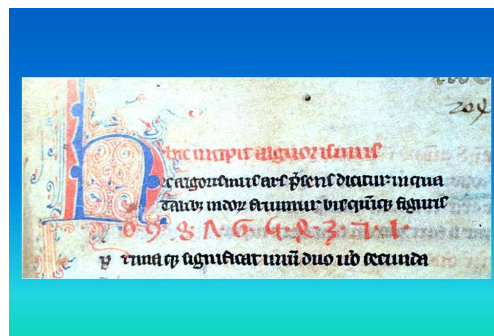 hic incipit alguorismus
Hec algorismus ars p̄sens dicitur in qua
talibꝫ indoꝝ fruimur bis quīqꝫ figuris
0 9 8 7 6 5 4 3 2 1
prima qꝫ significat unū duo ṽo secunda